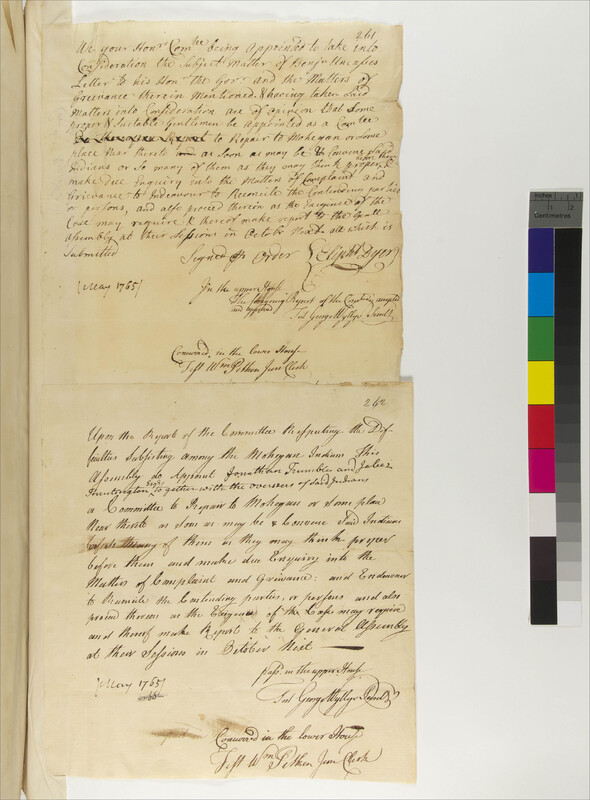 261
We your Honrs Comtee being appointed to take into
Consideration the Subject Matter of Benjn Uncasses
Letter to his Honr the Govr and the Matters of
Grievance therein Mentioned & having taken Said
Matters into Consideration are of opinion that Some
proper & Suitable Gentlemen be appointed as a Comtee
to Repair to Mohegan or Some
place Near thereto as Soon as may be & Convene Said
Indians or So many of them as they may think proper
before them &
make due Inquiry into the Matters of Complaint and
Grievance to Endeavour to Reconcile the Contending parties
or persons, and also proceed therein as the Exigence of the
Case may require & thereof make report to the Genll
Assembly at their Sessions in October Next all which is
Submitted
Signed pr Order Elipht Dyer
[May 1765]
In the upper House
The foregoing Report of the Comtee accepted
and approved
Test George Wyllys Secret
Concurrd in the lower House
Test Wm Pitkin Junr Clerk
262
Upon the Report of the Committee Respecting the Dif
ficulties Subsisting among the Mohegan Indians This
Assembly do Appoint Jonathan Trumble and Jabez
Huntington Esqrs together with the overseers of said Indians
a Committee to Repair to Mohegan or Some place
Near thereto as Soon as may be & Convene Said Indians
of them as they may think proper
before them and make due Enquiry into the
Matters of Complaint and Grievance: and Endeavour
to Reconcile the Contending parties, or persons and also
proceed therein as the Exigence of the Case may require
and thereof make Report to the General Assembly
at their Sessions in October Next
Pass'd in the upper House
Test George Wyllys Secret
[May 1765]
Concurrd in the lower House
Test Wm Pitkin Junr Clerk
Inches
1
2
Centimetres